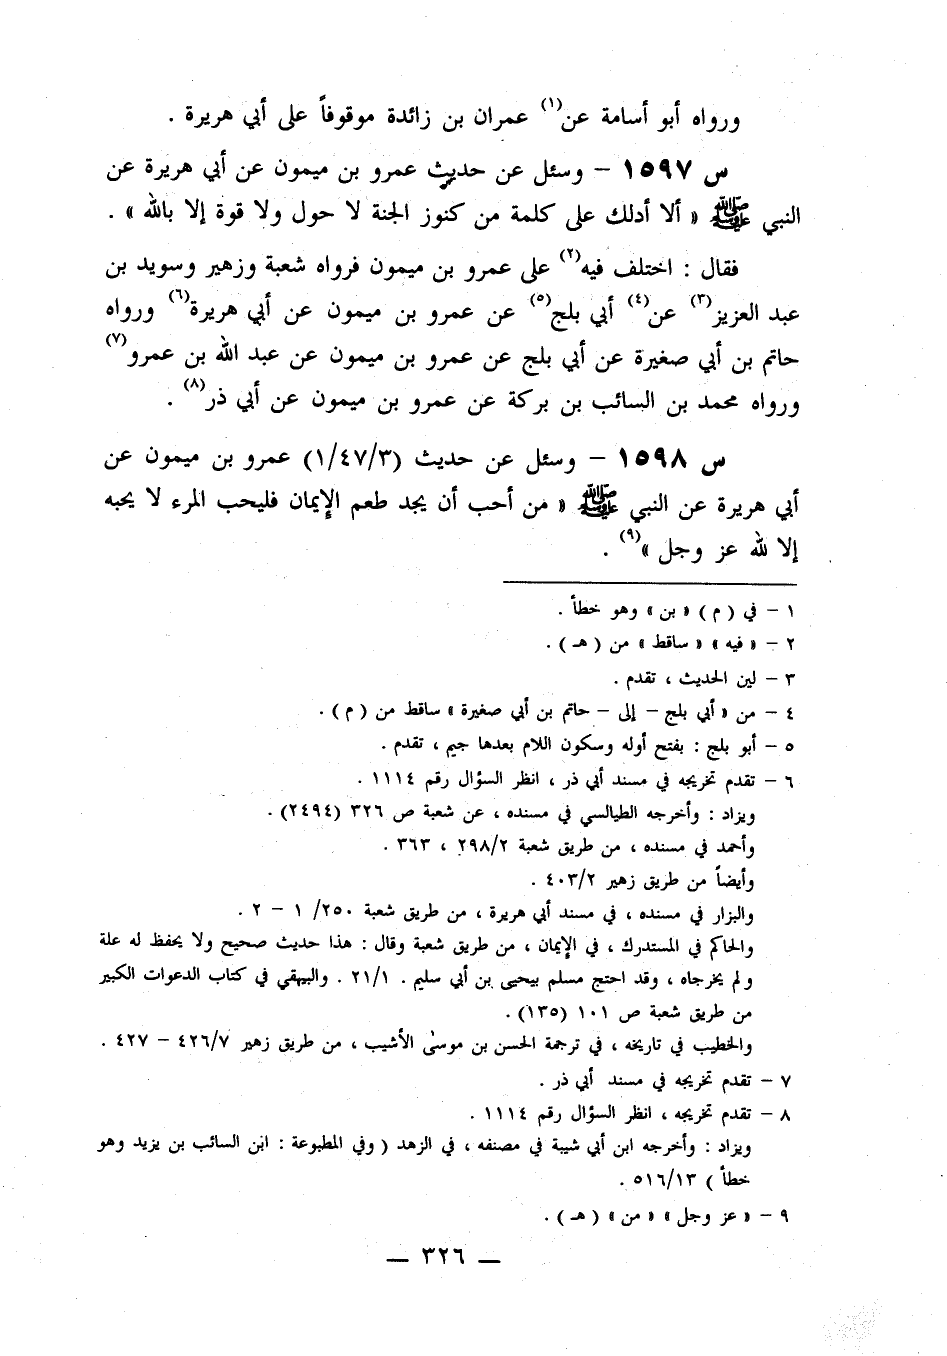 ورواه أبو أسامة عن(١) عمران بن زائدة موقوفاً على أبي هريرة .
س ١٥٩٧ – وسئل عن حديث عمرو بن ميمون عن أبي هريرة عن
النبي ﷺ « ألا أدلك على كلمة من كنوز الجنة لا حول ولا قوة إلا بالله » .
فقال : اختلف فيه(٢) على عمرو بن ميمون فرواه شعبة وزهير وسويد بن
عبد العزيز(٣) عن(٤) أبي بلج(٥) عن عمرو بن ميمون عن أبي هريرة(٦) ورواه
حاتم بن أبي صغيرة عن أبي بلج عن عمرو بن ميمون عن عبد الله بن عمرو(٧)
ورواه محمد بن السائب بن بركة عن عمرو بن ميمون عن أبي ذر(٨) .
س ١٥٩٨ – وسئل عن حديث (١/٤٧/٣) عمرو بن ميمون عن
أبي هريرة عن النبي ﷺ « من أحب أن يجد طعم الإيمان فليحب المرء لا يحبه
إلا لله عز وجل »(٩) .
١ – في ( م ) « بن » وهو خطأ .
٢ – « فيه » « ساقط » من ( هـ ) .
٣ – لين الحديث ، تقدم .
٤ – من « أبي بلج – إلى – حاتم بن أبي صغيرة » ساقط من ( م ) .
٥ – أبو بلج : بفتح أوله وسكون اللام بعدها جيم ، تقدم .
٦ – تقدم تخريجه في مسند أبي ذر ، انظر السؤال رقم ١١١٤ .
ويزاد : وأخرجه الطيالسي في مسنده ، عن شعبة ص ٣٢٦ (٢٤٩٤) .
وأحمد في مسنده ، من طريق شعبة ٢٩٨/٢ ، ٣٦٣ .
وأيضاً من طريق زهير ٤٠٣/٢ .
والبزار في مسنده ، في مسند أبي هريرة ، من طريق شعبة ٢٥٠/ ١ – ٢ .
والحاكم في المستدرك ، في الإيمان ، من طريق شعبة وقال : هذا حديث صحيح ولا يحفظ له علة
ولم يخرجاه ، وقد احتج مسلم بيحيى بن أبي سليم . ٢١/١ . والبيهقي في كتاب الدعوات الكبير
من طريق شعبة ص ١٠١ (١٣٥) .
والخطيب في تاريخه ، في ترجمة الحسن بن موسى الأشيب ، من طريق زهير ٤٢٦/٧ – ٤٢٧ .
٧ – تقدم تخريجه في مسند أبي ذر .
٨ – تقدم تخريجه ، انظر السؤال رقم ١١١٤ .
ويزاد : وأخرجه ابن أبي شيبة في مصنفه ، في الزهد ( وفي المطبوعة : ابن السائب بن يزيد وهو
خطأ ) ٥١٦/١٣ .
٩ – « عز وجل » « من » ( هـ ) .
— ٣٢٦ —